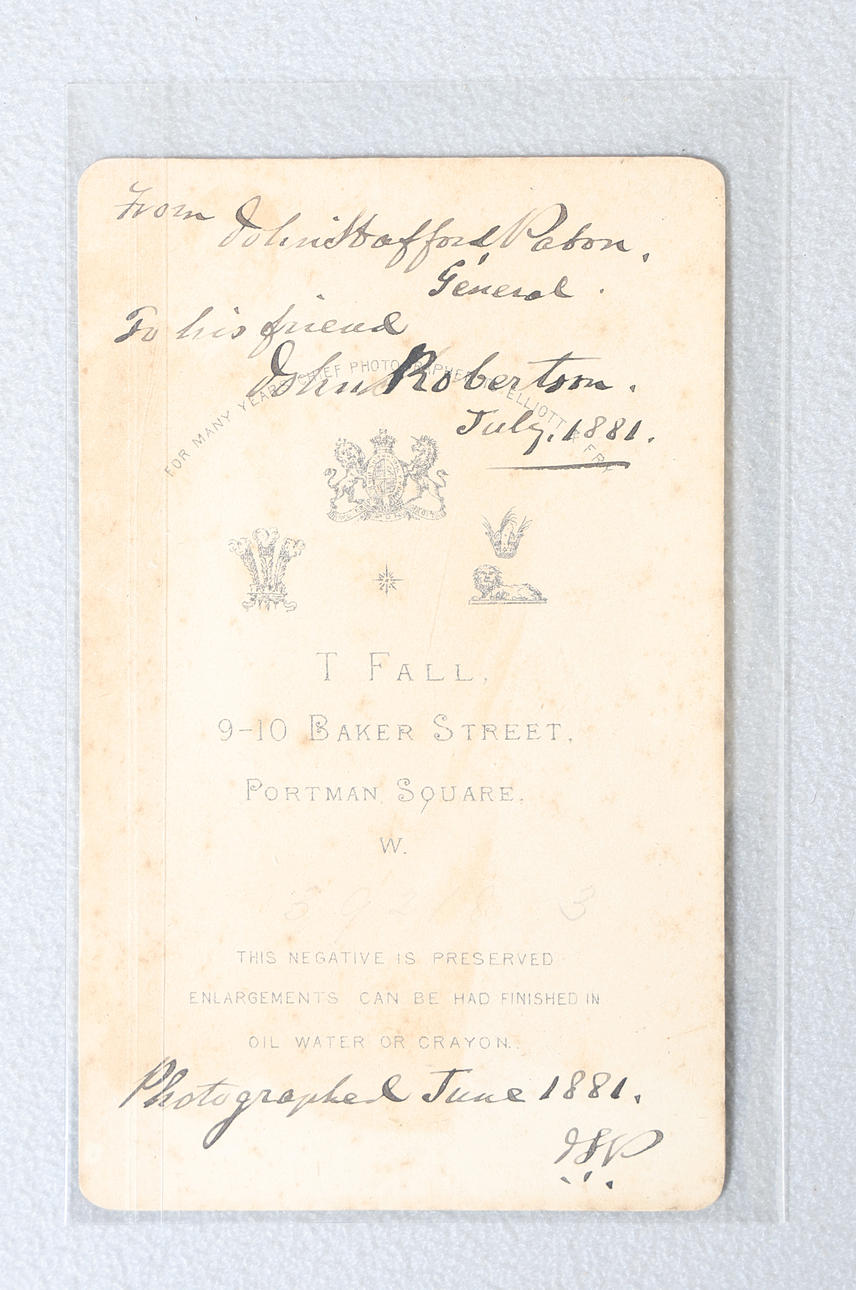 From John Stafford Paton.
General.
To his friend
John Robertson.
July, 1881.
FOR MANY YEARS CHIEF PHOTOGRAPHER ELLIOTT & FRY
T FALL,
9-10 BAKER STREET,
PORTMAN SQUARE.
W.
3
THIS NEGATIVE IS PRESERVED
ENLARGEMENTS CAN BE HAD FINISHED IN
OIL WATER OR CRAYON.
Photographed June 1881.
JSP